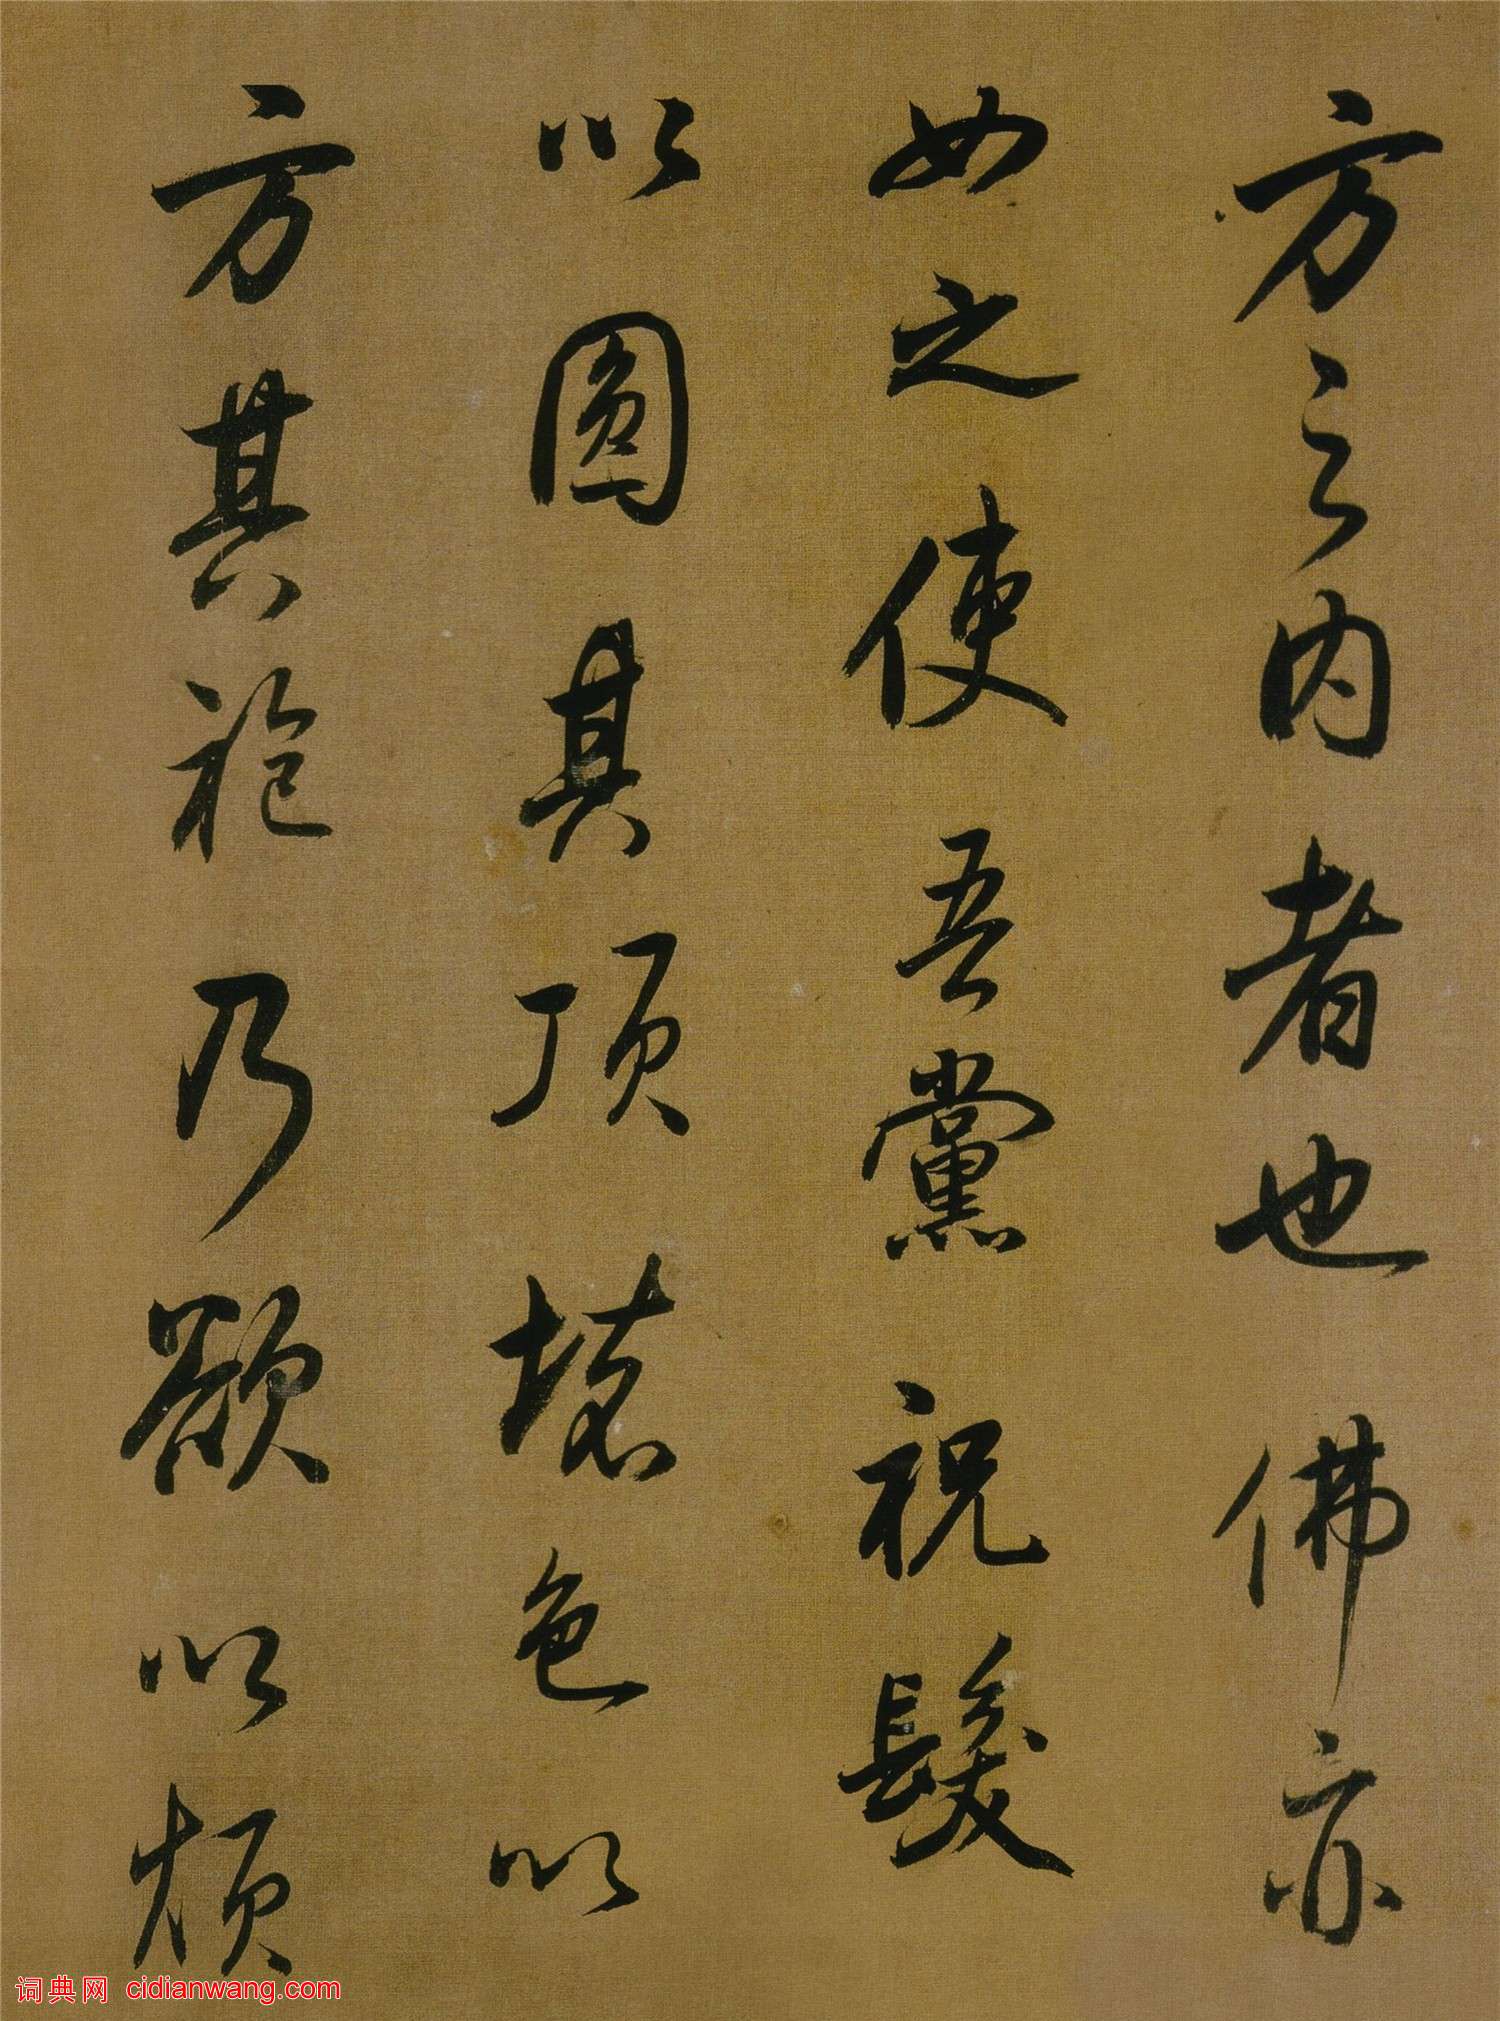 方之内者也佛亦
如之使吾黨祝髮
以圓其頂壞色以
方其袍乃欲以煩
词典网 cidianwang.com